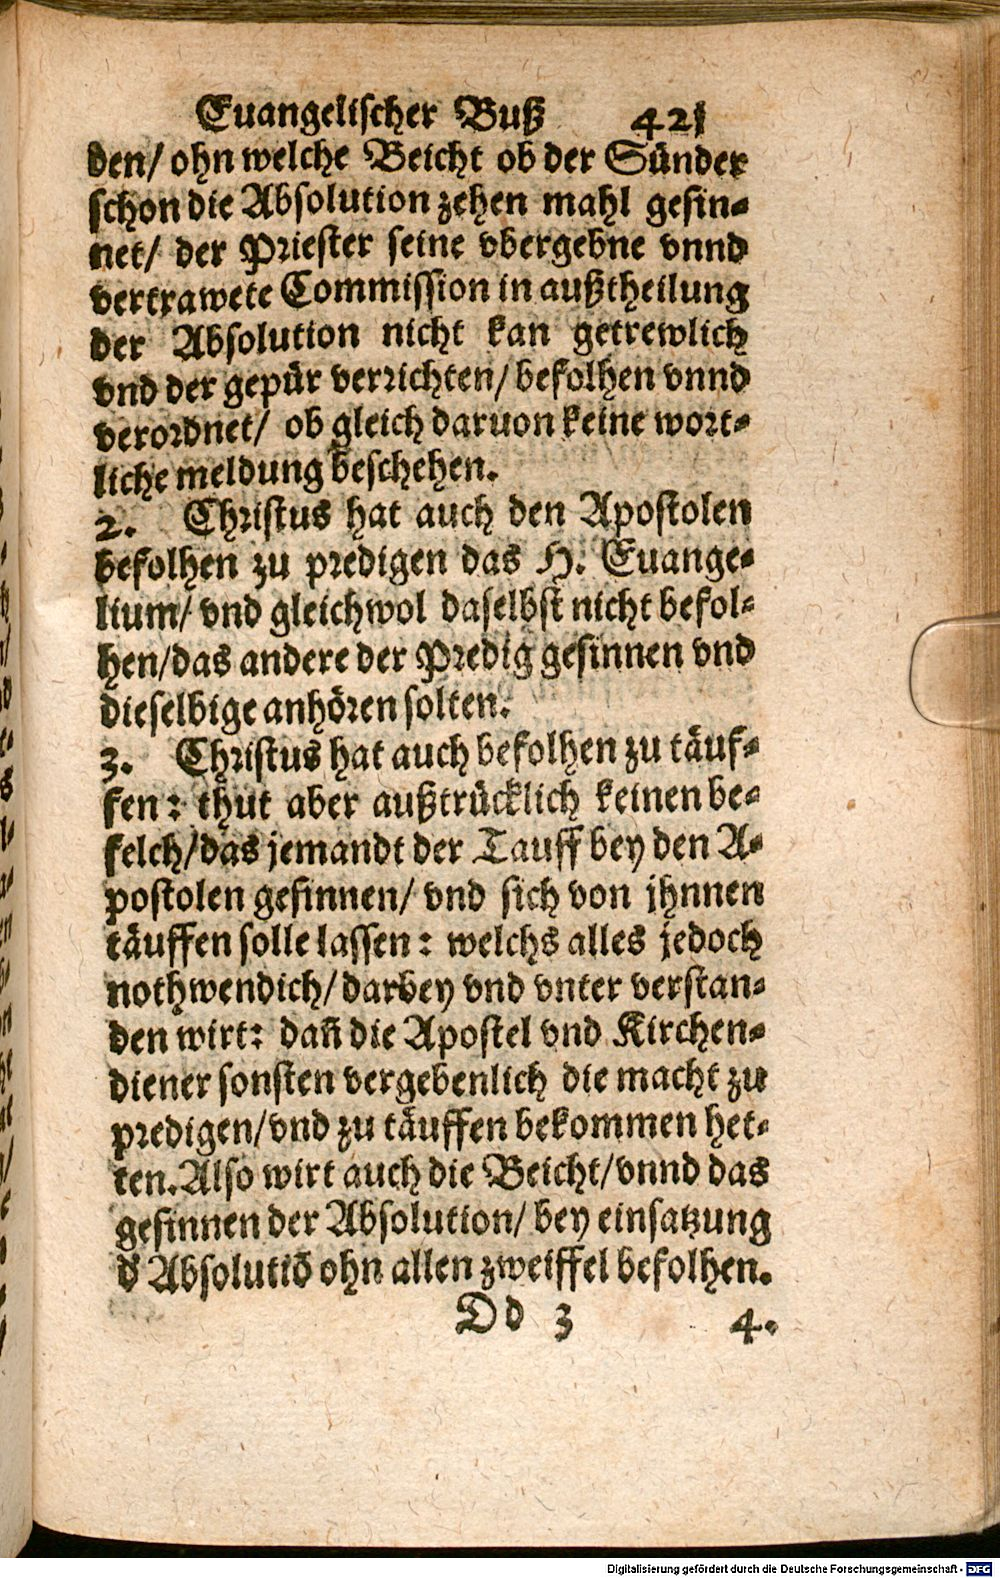 Euangelischer Buß 421
den/ ohn welche Beicht ob der Sünder
schon die Absolution zehen mahl gesin-
net/ der Priester seine vbergebne vnnd
vertrawete Commission in außtheilung
der Absolution nicht kan getrewlich
vnd der gepür verrichten/ befolhen vnnd
verordnet/ ob gleich daruon keine wort-
liche meldung beschehen.
2. Christus hat auch den Apostolen
befolhen zu predigen das H. Euange-
lium/ vnd gleichwol daselbst nicht befol-
hen/das andere der Predig gesinnen vnd
dieselbige anhören solten.
3. Christus hat auch befolhen zu täuf-
fen: thut aber außtrücklich keinen be-
felch/das jemandt der Tauff bey den A-
postolen gesinnen/ vnd sich von jhnnen
täuffen solle lassen: welchs alles jedoch
nothwendich/darbey vnd vnter verstan-
den wirt: dañ die Apostel vnd Kirchen-
diener sonsten vergebenlich die macht zu
predigen/vnd zu täuffen bekommen het-
ten. Also wirt auch die Beicht/vnnd das
gesinnen der Absolution/ bey einsatzung
d' Absolutiō ohn allen zweiffel befolhen.
Dd 3 4.
Digitalisierung gefördert durch die Deutsche Forschungsgemeinschaft - DFG